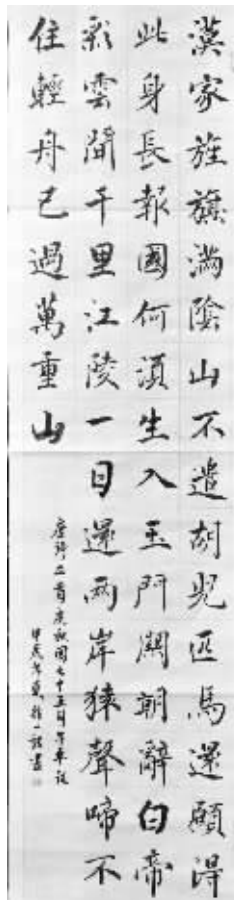 漢家旌旗滿陰山不遣胡兒匹馬還願得
此身長報國何須生入玉門關朝辭白帝
彩雲間千里江陵一日還兩岸猿聲啼不
住輕舟已過萬重山
唐詩二首慶祝國七十五周年華誕
甲辰年夏書